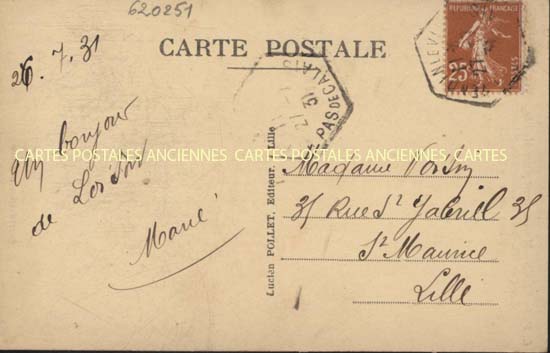 620251
26.7.31
CARTE POSTALE
25
27
31
PAS DE CALAIS
CARTES POSTALES ANCIENNES CARTES POSTALES ANCIENNES CARTES POSTALES ANCIENNES
Un bonjour
de
Marie
Lucien POLLET, Editeur, Lille
Madame
35 Rue St Gabriel 35
St Maurice
Lille